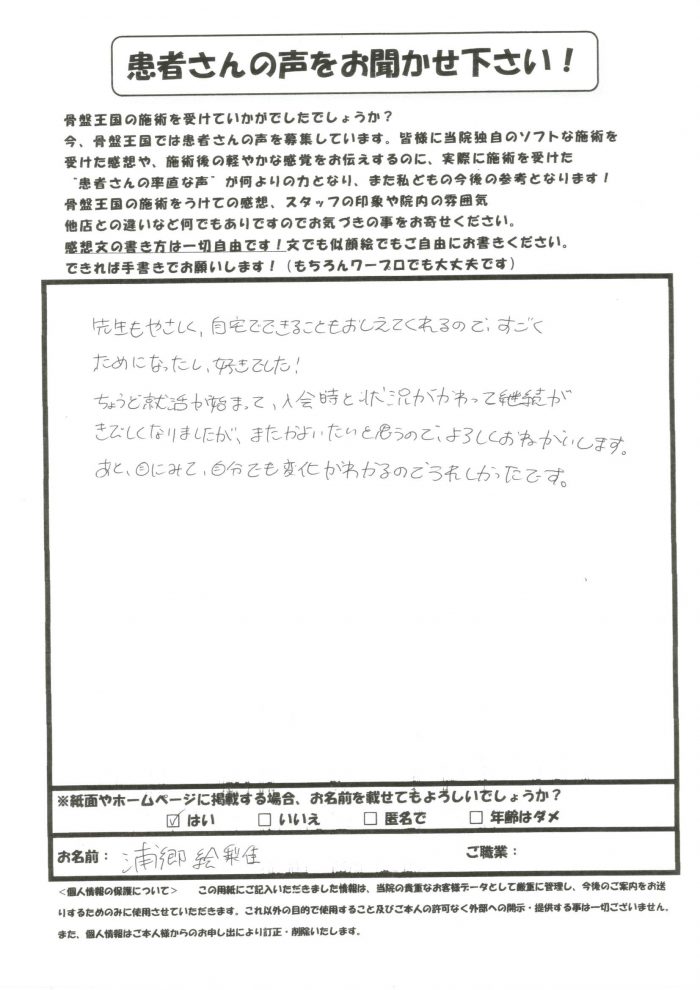 患者さんの声をお聞かせ下さい！
骨盤王国の施術を受けていかがでしたでしょうか？
今、骨盤王国では患者さんの声を募集しています。皆様に当院独自のソフトな施術を
受けた感想や、施術後の軽やかな感覚をお伝えするのに、実際に施術を受けた
“患者さんの率直な声”が何よりの力となり、また私どもの今後の参考となります！
骨盤王国の施術をうけての感想、スタッフの印象や院内の雰囲気
他店との違いなど何でもありですのでお気づきの事をお寄せください。
感想文の書き方は一切自由です！文でも似顔絵でもご自由にお書きください。
できれば手書きでお願いします！（もちろんワープロでも大丈夫です）
先生もやさしく、自宅でできることもおしえてくれるので、すごく
ためになったし、好きでした！
ちょうど就活が始まって、入会時と状況がかわって継続が
きびしくなりましたが、またかよいたいと思うので、よろしくおねがいします。
あと、目にみて、自分でも変化がわかるのでうれしかったです。
※紙面やホームページに掲載する場合、お名前を載せてもよろしいでしょうか？
☑ はい □ いいえ □ 匿名で □ 年齢はダメ
お名前： 浦郷 絵梨佳 ご職業：
＜個人情報の保護について＞ この用紙にご記入いただきました情報は、当院の貴重なお客様データとして厳重に管理し、今後のご案内をお送
りするためのみに使用させていただきます。これ以外の目的で使用すること及びご本人の許可なく外部への開示・提供する事は一切ございません。
また、個人情報はご本人様からのお申し出により訂正・削除いたします。